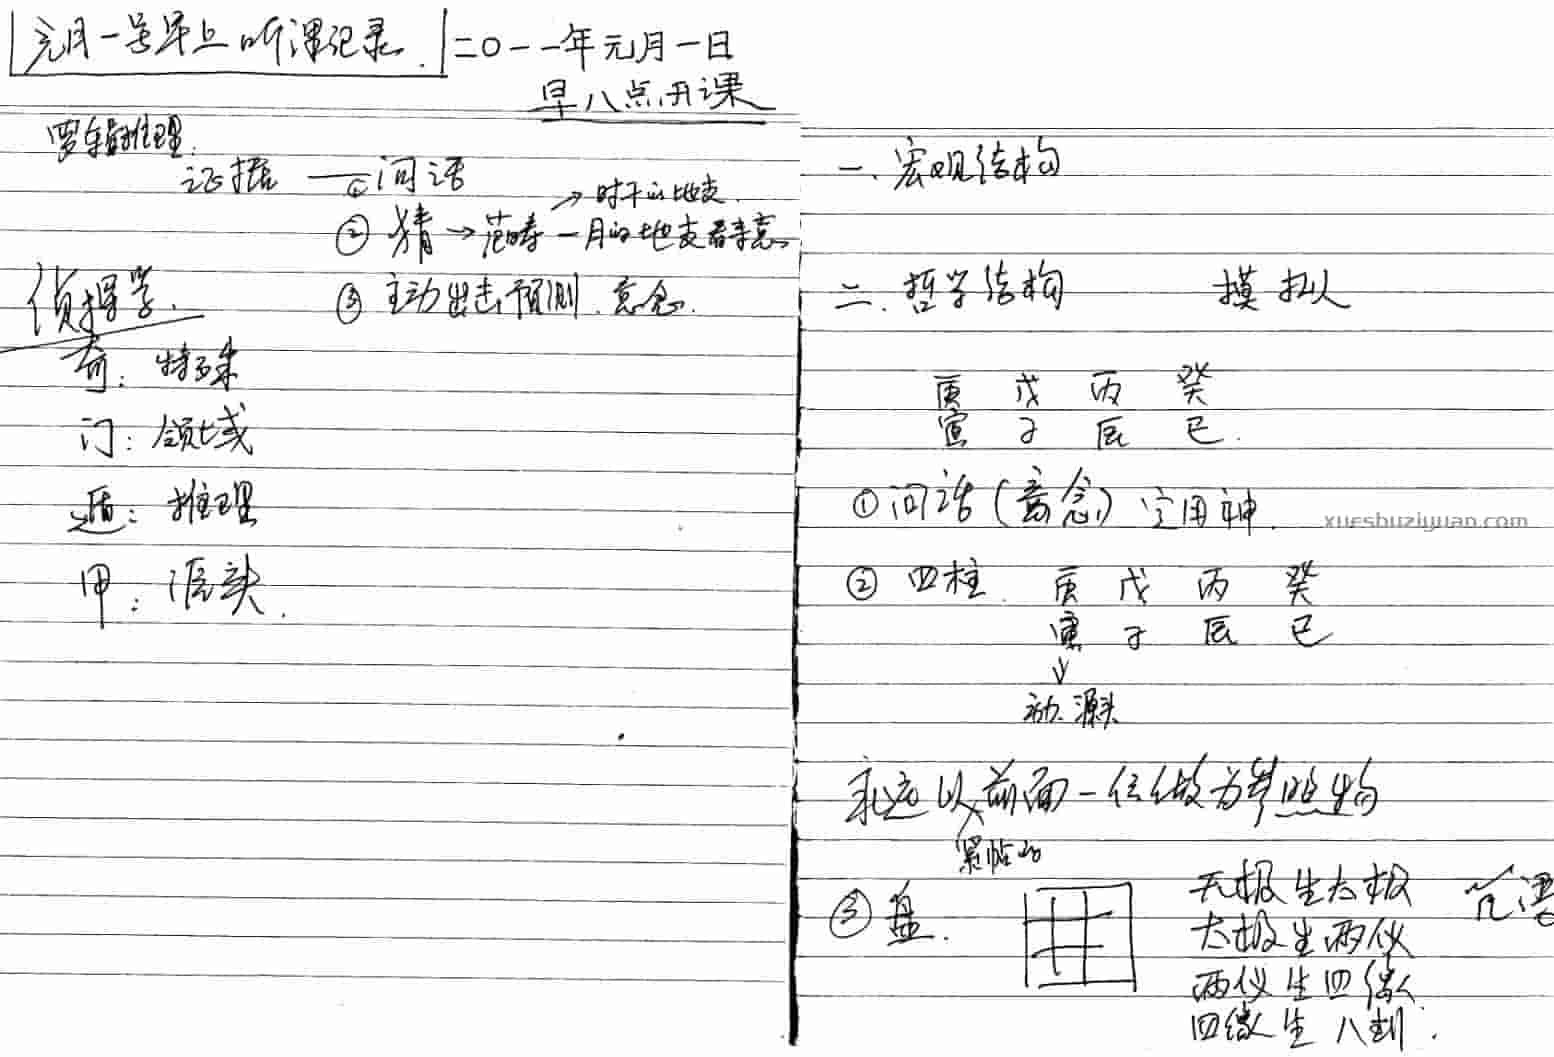 元月一号早上听课记录. 二〇一一年元月一日
早八点开课
逻辑推理.
证据 — ① 问话
→ 时干的地支.
② 猜 → 范畴 — 月的地支看来意.
③ 主动出击预测. 意念.
侦探学.
奇: 特殊
门: 领域
遁: 推理
甲: 源头.
一. 宏观结构
二. 哲学结构 摸拟
庚 戊 丙 癸
寅 子 辰 巳.
① 问话 (意念) 定用神.
xueshuziyuan.com
② 四柱. 庚 戊 丙 癸
寅 子 辰 巳
↓
动. 源头
永远以前面一位做为参照物
紧帖的
③ 盘.
无极生太极
太极生两仪
两仪生四像.
四像生八卦.